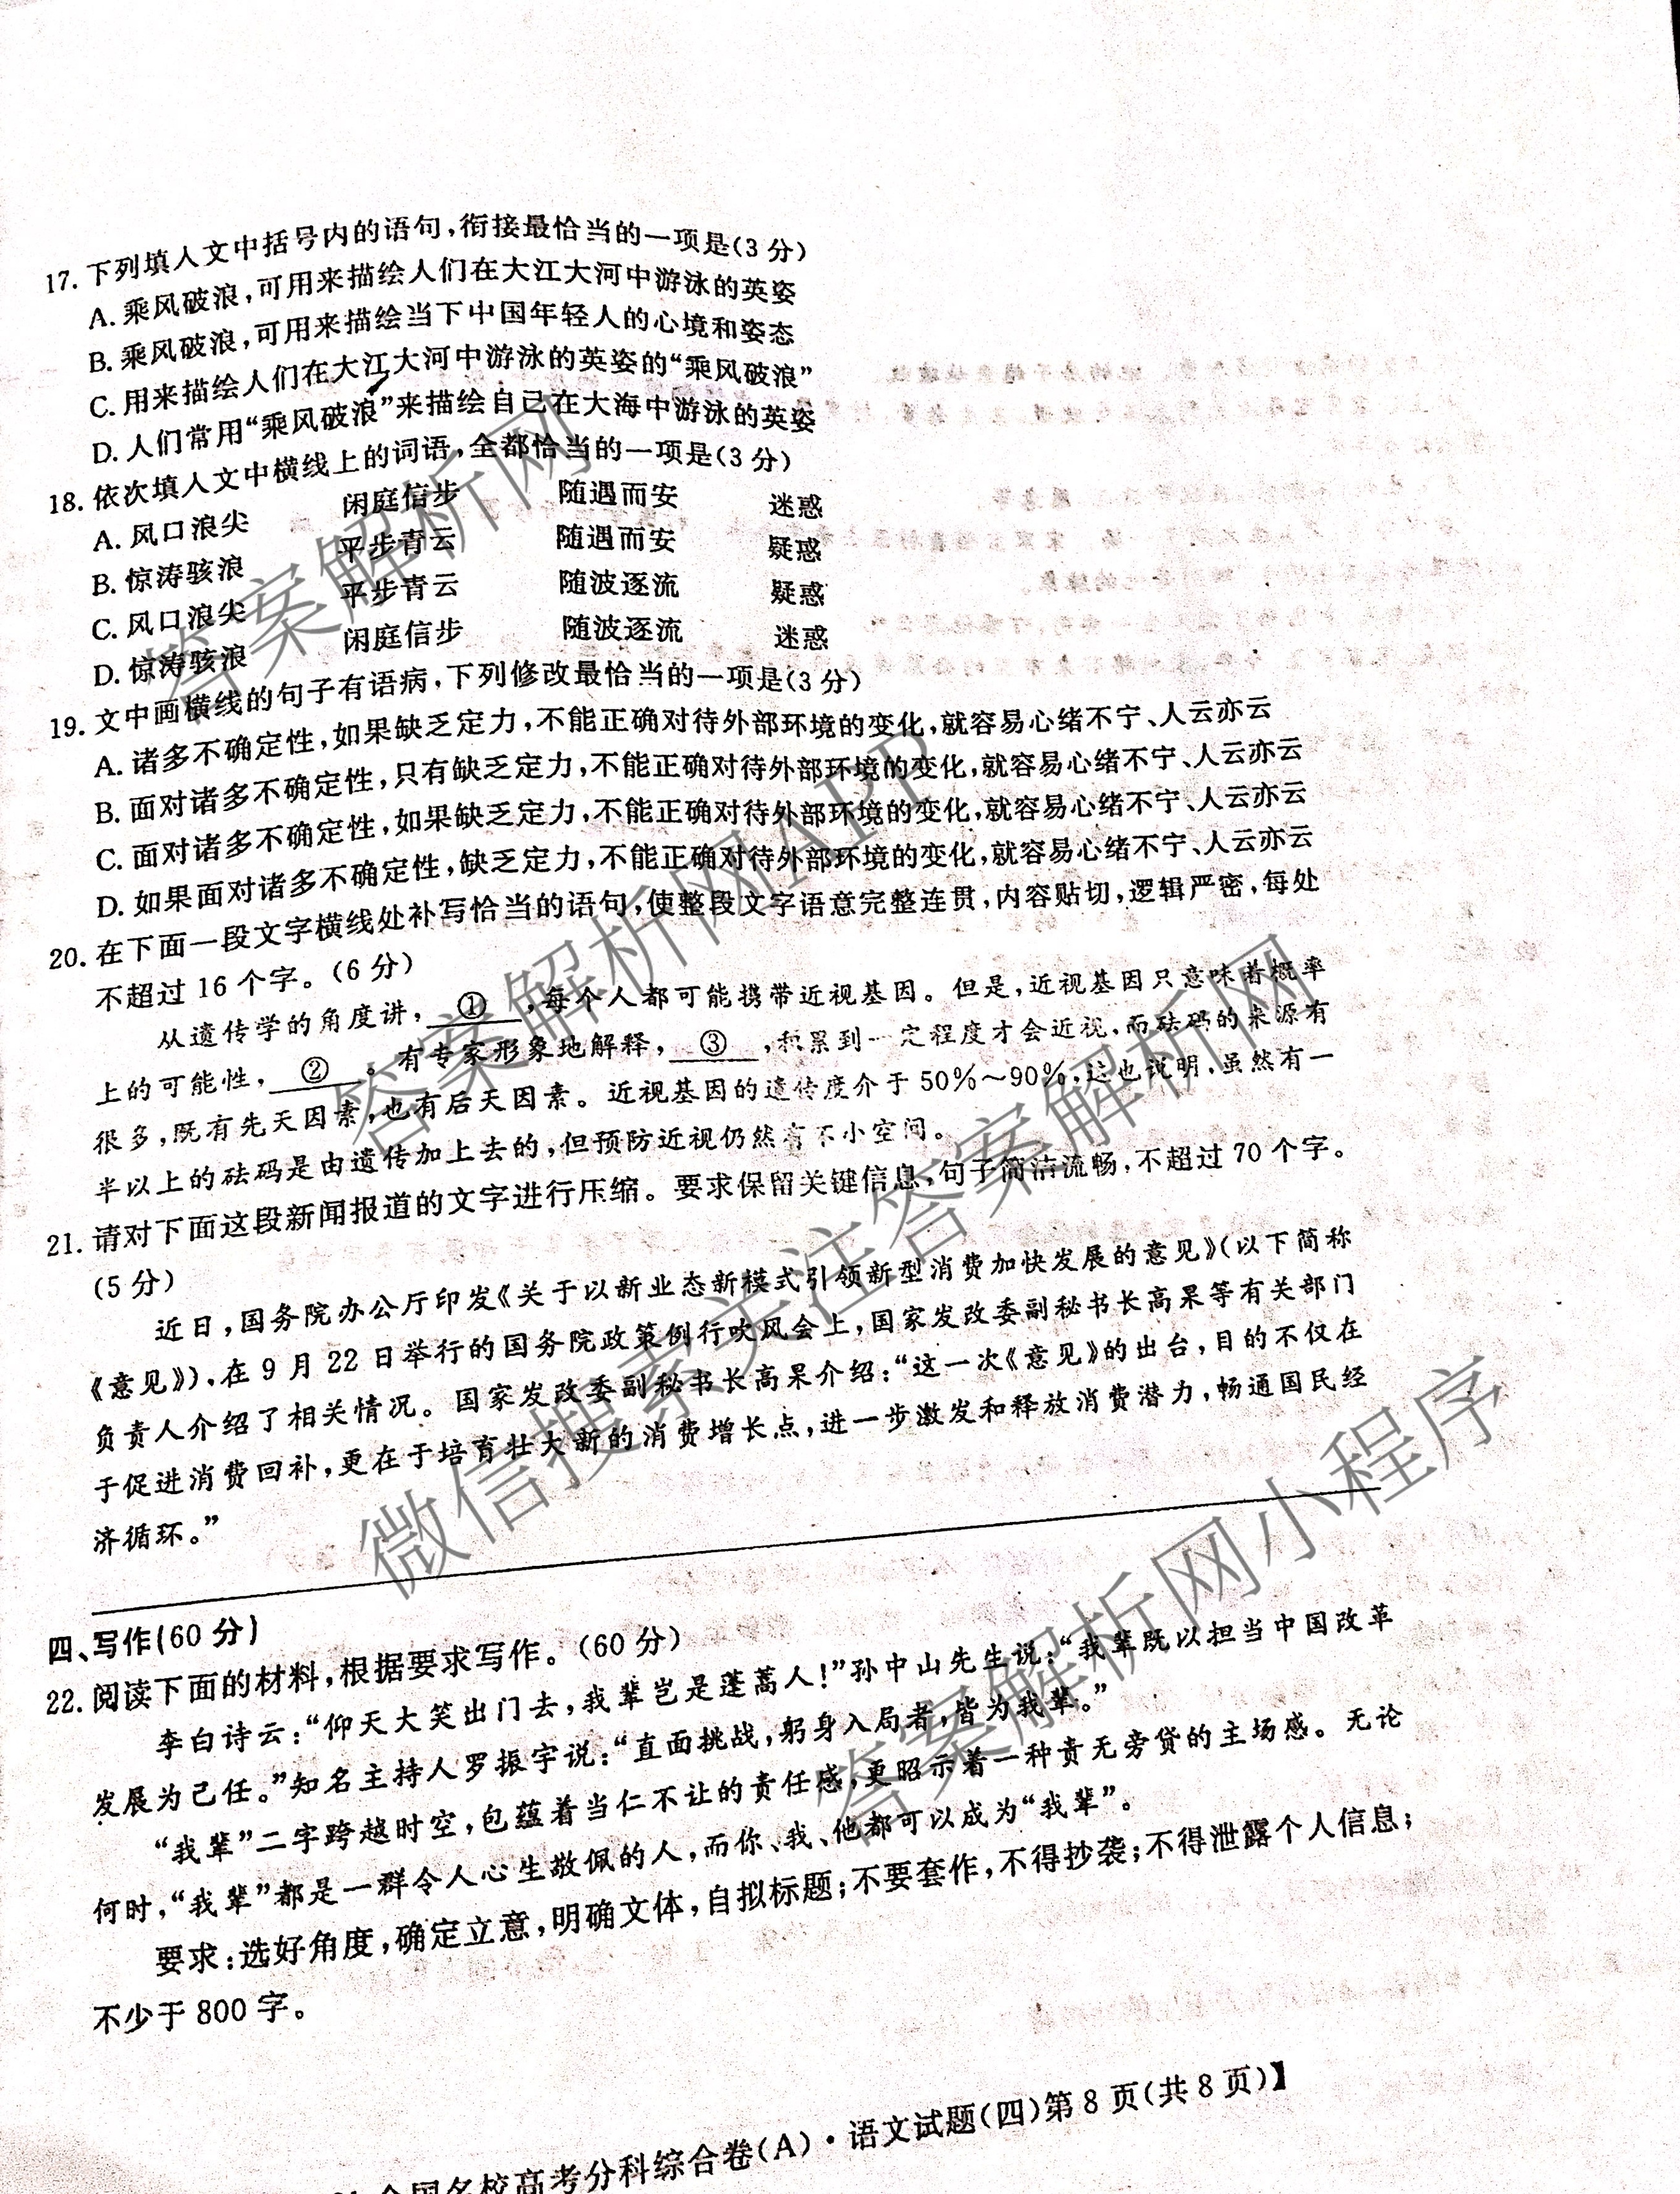 17. 下列填入文中括号内的语句,衔接最恰当的一项是(3 分)
A. 乘风破浪,可用来描绘人们在大江大河中游泳的英姿
B. 乘风破浪,可用来描绘当下中国年轻人的心境和姿态
C. 用来描绘人们在大江大河中游泳的英姿的“乘风破浪”
D. 人们常用“乘风破浪”来描绘自己在大海中游泳的英姿
18. 依次填入文中横线上的词语,全都恰当的一项是(3 分)
A. 风口浪尖 闲庭信步 随遇而安 迷惑
B. 惊涛骇浪 平步青云 随遇而安 疑惑
C. 风口浪尖 平步青云 随波逐流 疑惑
D. 惊涛骇浪 闲庭信步 随波逐流 迷惑
19. 文中画横线的句子有语病,下列修改最恰当的一项是(3 分)
A. 诸多不确定性,如果缺乏定力,不能正确对待外部环境的变化,就容易心绪不宁、人云亦云
B. 面对诸多不确定性,只有缺乏定力,不能正确对待外部环境的变化,就容易心绪不宁、人云亦云
C. 面对诸多不确定性,如果缺乏定力,不能正确对待外部环境的变化,就容易心绪不宁、人云亦云
D. 如果面对诸多不确定性,缺乏定力,不能正确对待外部环境的变化,就容易心绪不宁、人云亦云
20. 在下面一段文字横线处补写恰当的语句,使整段文字语意完整连贯,内容贴切,逻辑严密,每处
不超过 16 个字。(6 分)
从遗传学的角度讲, ① ,每个人都可能携带近视基因。但是,近视基因只意味着概率
上的可能性, ② 。有专家形象地解释, ③ ,积累到一定程度才会近视,而砝码的来源有
很多,既有先天因素,也有后天因素。近视基因的遗传度介于 50%～90%,这也说明,虽然有一
半以上的砝码是由遗传加上去的,但预防近视仍然有不小空间。
21. 请对下面这段新闻报道的文字进行压缩。要求保留关键信息,句子简洁流畅,不超过 70 个字。
(5 分)
近日,国务院办公厅印发《关于以新业态新模式引领新型消费加快发展的意见》(以下简称
《意见》),在 9 月 22 日举行的国务院政策例行吹风会上,国家发改委副秘书长高杲等有关部门
负责人介绍了相关情况。国家发改委副秘书长高杲介绍:“这一次《意见》的出台,目的不仅在
于促进消费回补,更在于培育壮大新的消费增长点,进一步激发和释放消费潜力,畅通国民经
济循环。”
四、写作(60 分)
22. 阅读下面的材料,根据要求写作。(60 分)
李白诗云:“仰天大笑出门去,我辈岂是蓬蒿人!”孙中山先生说:“我辈既以担当中国改革
发展为己任。”知名主持人罗振宇说:“直面挑战,躬身入局者,皆为我辈。”
“我辈”二字跨越时空,包蕴着当仁不让的责任感,更昭示着一种责无旁贷的主场感。无论
何时,“我辈”都是一群令人心生敬佩的人,而你、我、他都可以成为“我辈”。
要求:选好角度,确定立意,明确文体,自拟标题;不要套作,不得抄袭;不得泄露个人信息;
不少于 800 字。
全国名校高考分科综合卷(A)·语文试题(四)第 8 页(共 8 页)】
答案解析网
答案解析网APP
微信搜索关注答案解析网
答案解析网小程序